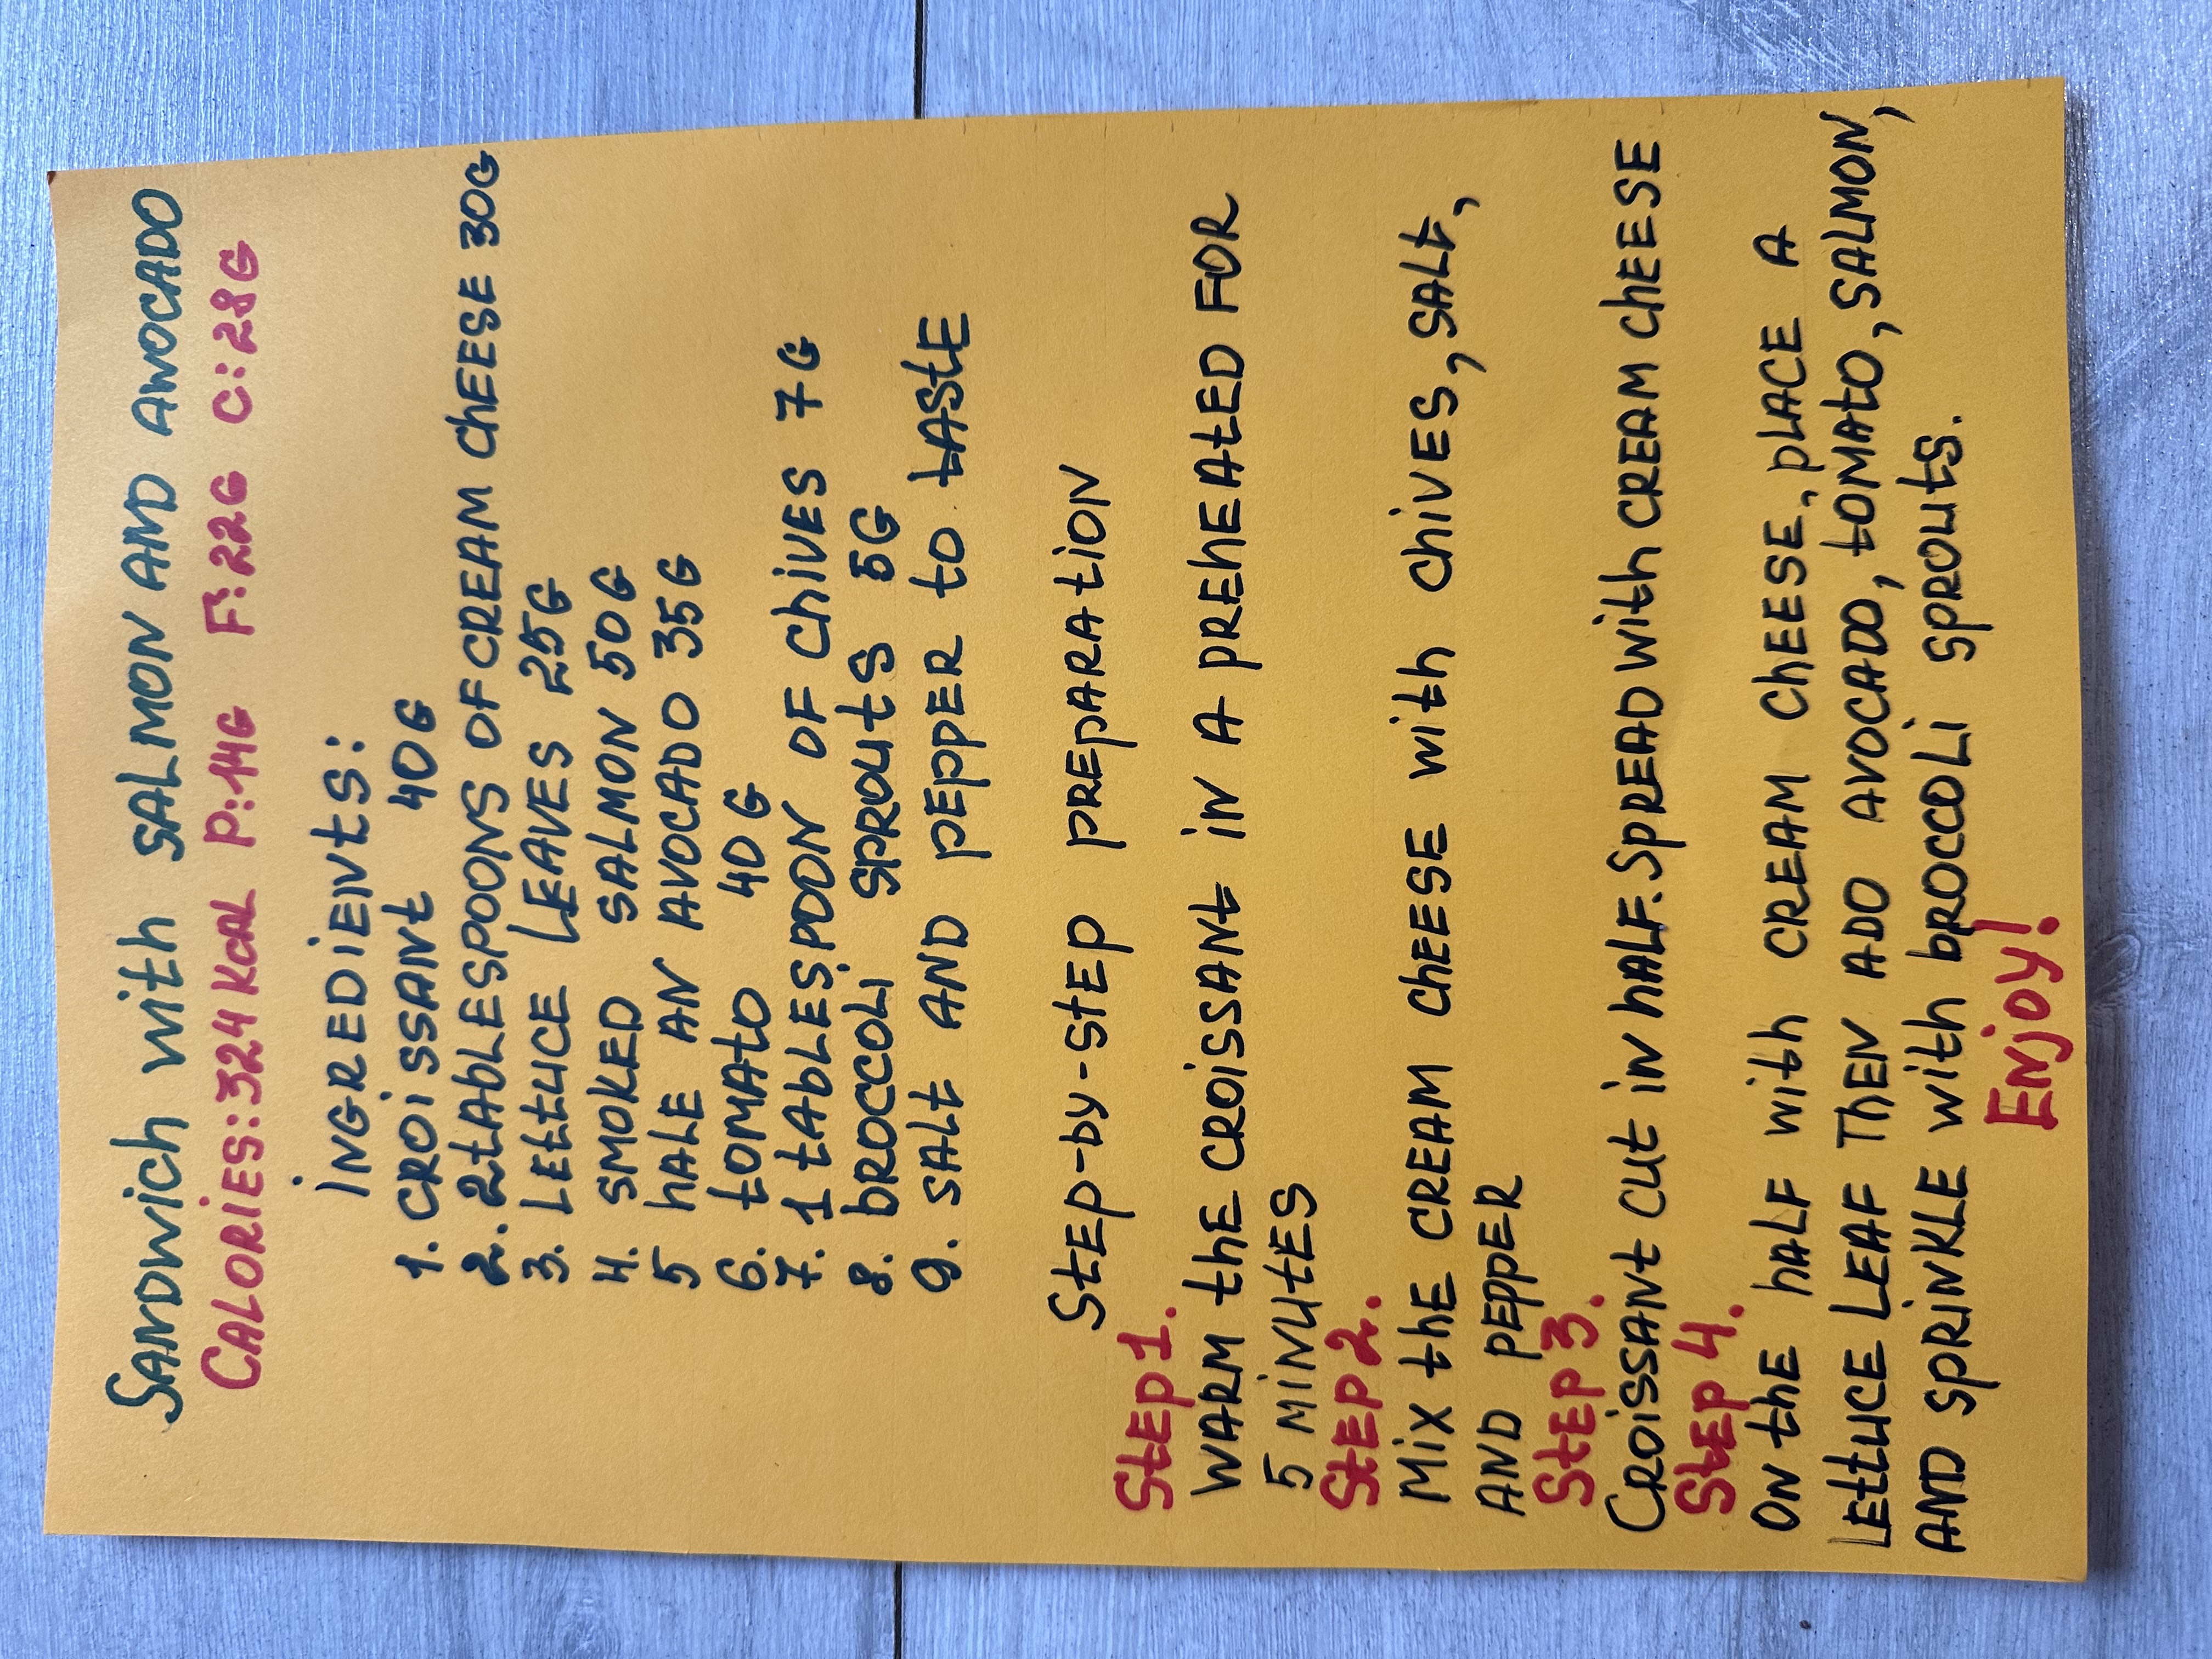 Sandwich with SALMON AND AWOCADO
CALORIES: 324 KCAL P:14G F:22G C:28G
INGREDIENTS:
1. CROISSANT 40G
2. 2 TABLESPOONS OF CREAM CHEESE 30G
3. LETTUCE LEAVES 25G
4. SMOKED SALMON 50G
5 HALE AN AVOCADO 35G
6. TOMATO 40G
7. 1 TABLESPOON OF CHIVES 7G
8. BROCCOLI SPROUTS 5G
9. SALT AND PEPPER TO TASTE
STEP-BY-STEP PREPARATION
STEP 1.
WARM THE CROISSANT IN A PREHEATED FOR
5 MINUTES
STEP 2.
MIX THE CREAM CHEESE WITH CHIVES, SALT,
AND PEPPER
STEP 3.
CROISSANT CUT IN HALF. SPREAD WITH CREAM CHEESE
STEP 4.
ON THE HALF WITH CREAM CHEESE, PLACE A
LETTUCE LEAF THEN ADD AVOCADO, TOMATO, SALMON,
AND SPRINKLE WITH BROCCOLI SPROUTS.
ENJOY!